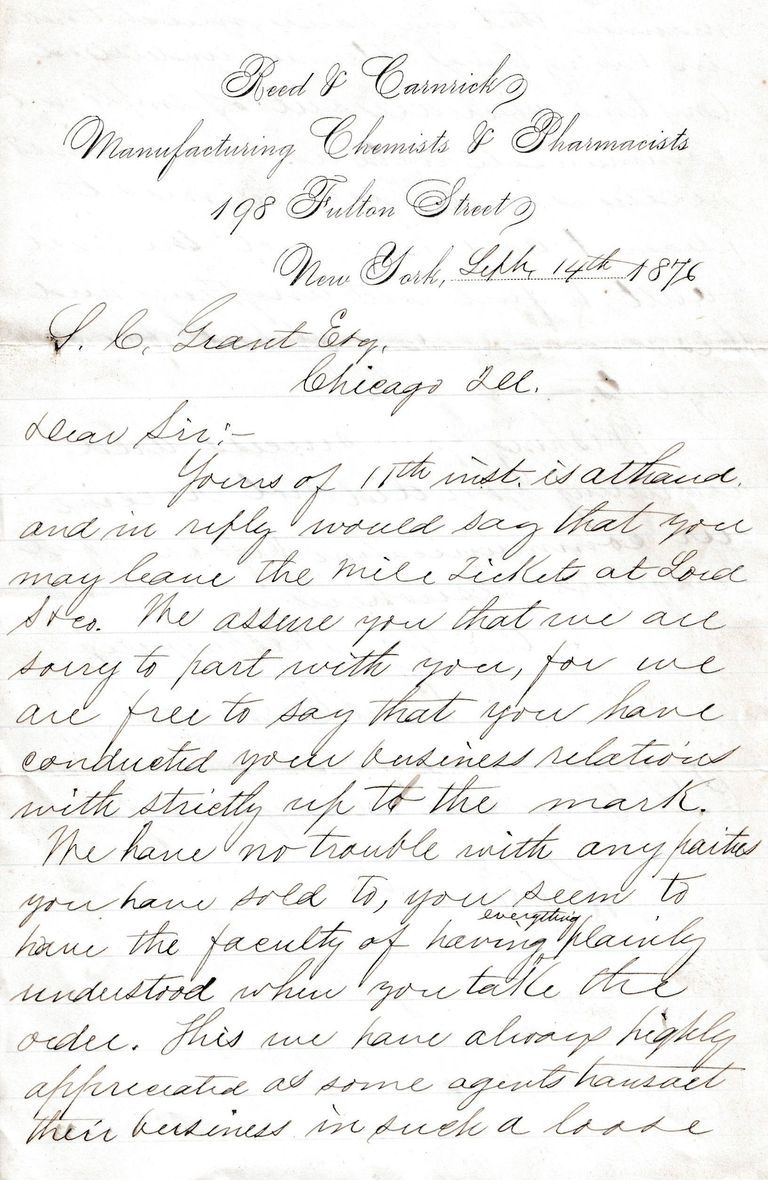 Reed & Carnrick
Manufacturing Chemists & Pharmacists
198 Fulton Street
New York, Sept. 14th 1876
S. C. Grant Esq.
Chicago Ill.
Dear Sir:-
Yours of 11th inst. is at hand.
and in reply would say that you
may leave the mile tickets at Lord
S & co. We assure you that we are
sorry to part with you, for we
are free to say that you have
conducted your business relations
with strictly up to the mark.
We have no trouble with any parties
you have sold to, you seem to
have the faculty of having everything plainly
understood when you take the
order. This we have always highly
appreciated as some agents transact
their business in such a loose